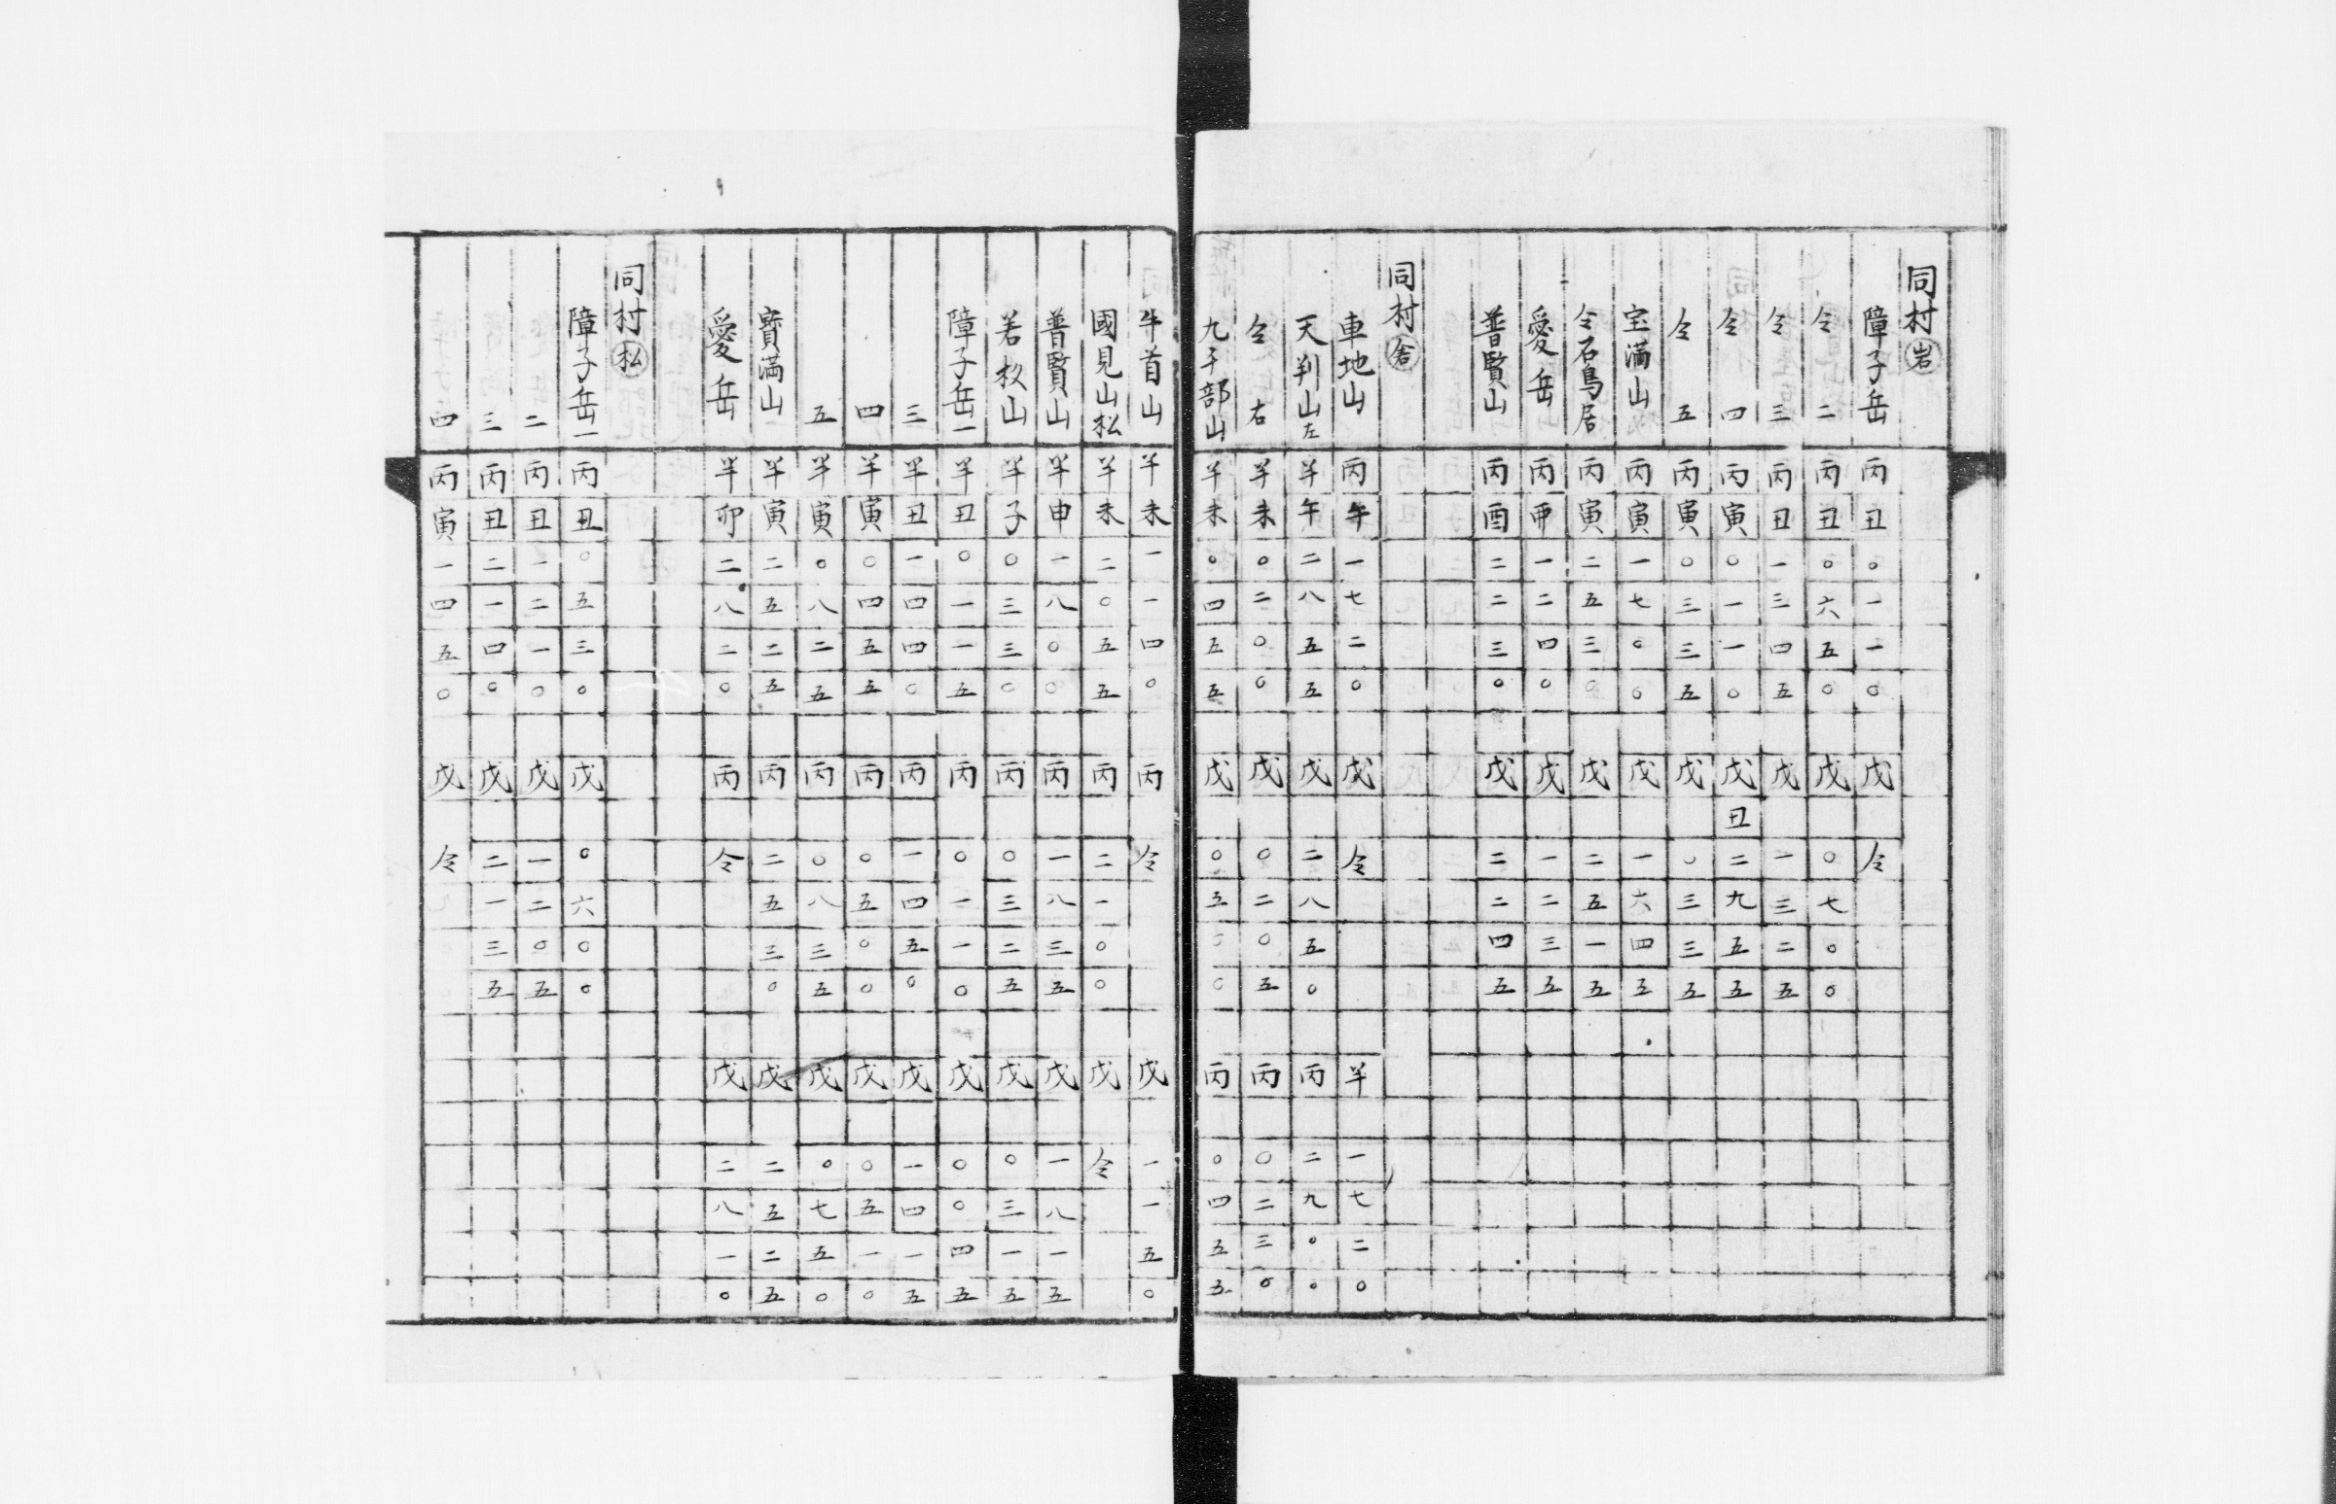 同村岩
障子岳丙丑〇一一〇戊仝
仝二丙丑〇六五〇戊〇七〇〇
仝三丙丑一三四五戊一三二五
仝四丙寅〇一一〇戊丑二九五五
仝五丙寅〇三三五戊〇三三五
宝満山丙寅一七〇〇戊一六四五
仝石鳥居丙寅二五三〇戊二五一五
愛岳丙一二四〇戊一二三五
普賢山丙酉二二三〇戊二二四五
同村舎
車地山丙午一七二〇戊仝半一七二〇
天判山左半午二八五五戊二八五〇丙二九〇〇
仝右半未〇二〇〇戊〇二〇五丙〇二三〇
九千部山半未〇四五五戊〇五〇〇丙〇四五五
牛首山半未一一四〇丙仝戊一一五〇
國見山松半未二〇五五丙二一〇〇戊仝
普賢山半申一八〇〇丙一八三五戊一八一五
若杦山半子〇三三〇丙〇三二五戊〇三一五
障子岳一半丑〇一一五丙〇一一〇戊〇〇四五
三半丑一四四〇丙一四五〇戊一四一五
四半寅〇四五五丙〇五〇〇戊〇五一〇
五半寅〇八二五丙〇八三五戊〇七五〇
寳満山半寅二五二五丙二五三〇戊二五二五
愛岳半卯二八二〇丙仝戊二八一〇
同村松
障子岳一丙丑〇五三〇戊〇六〇〇
二丙丑一二一〇戊一二〇五
三丙丑二一四〇戊二一三五
四丙寅一四五〇戊仝